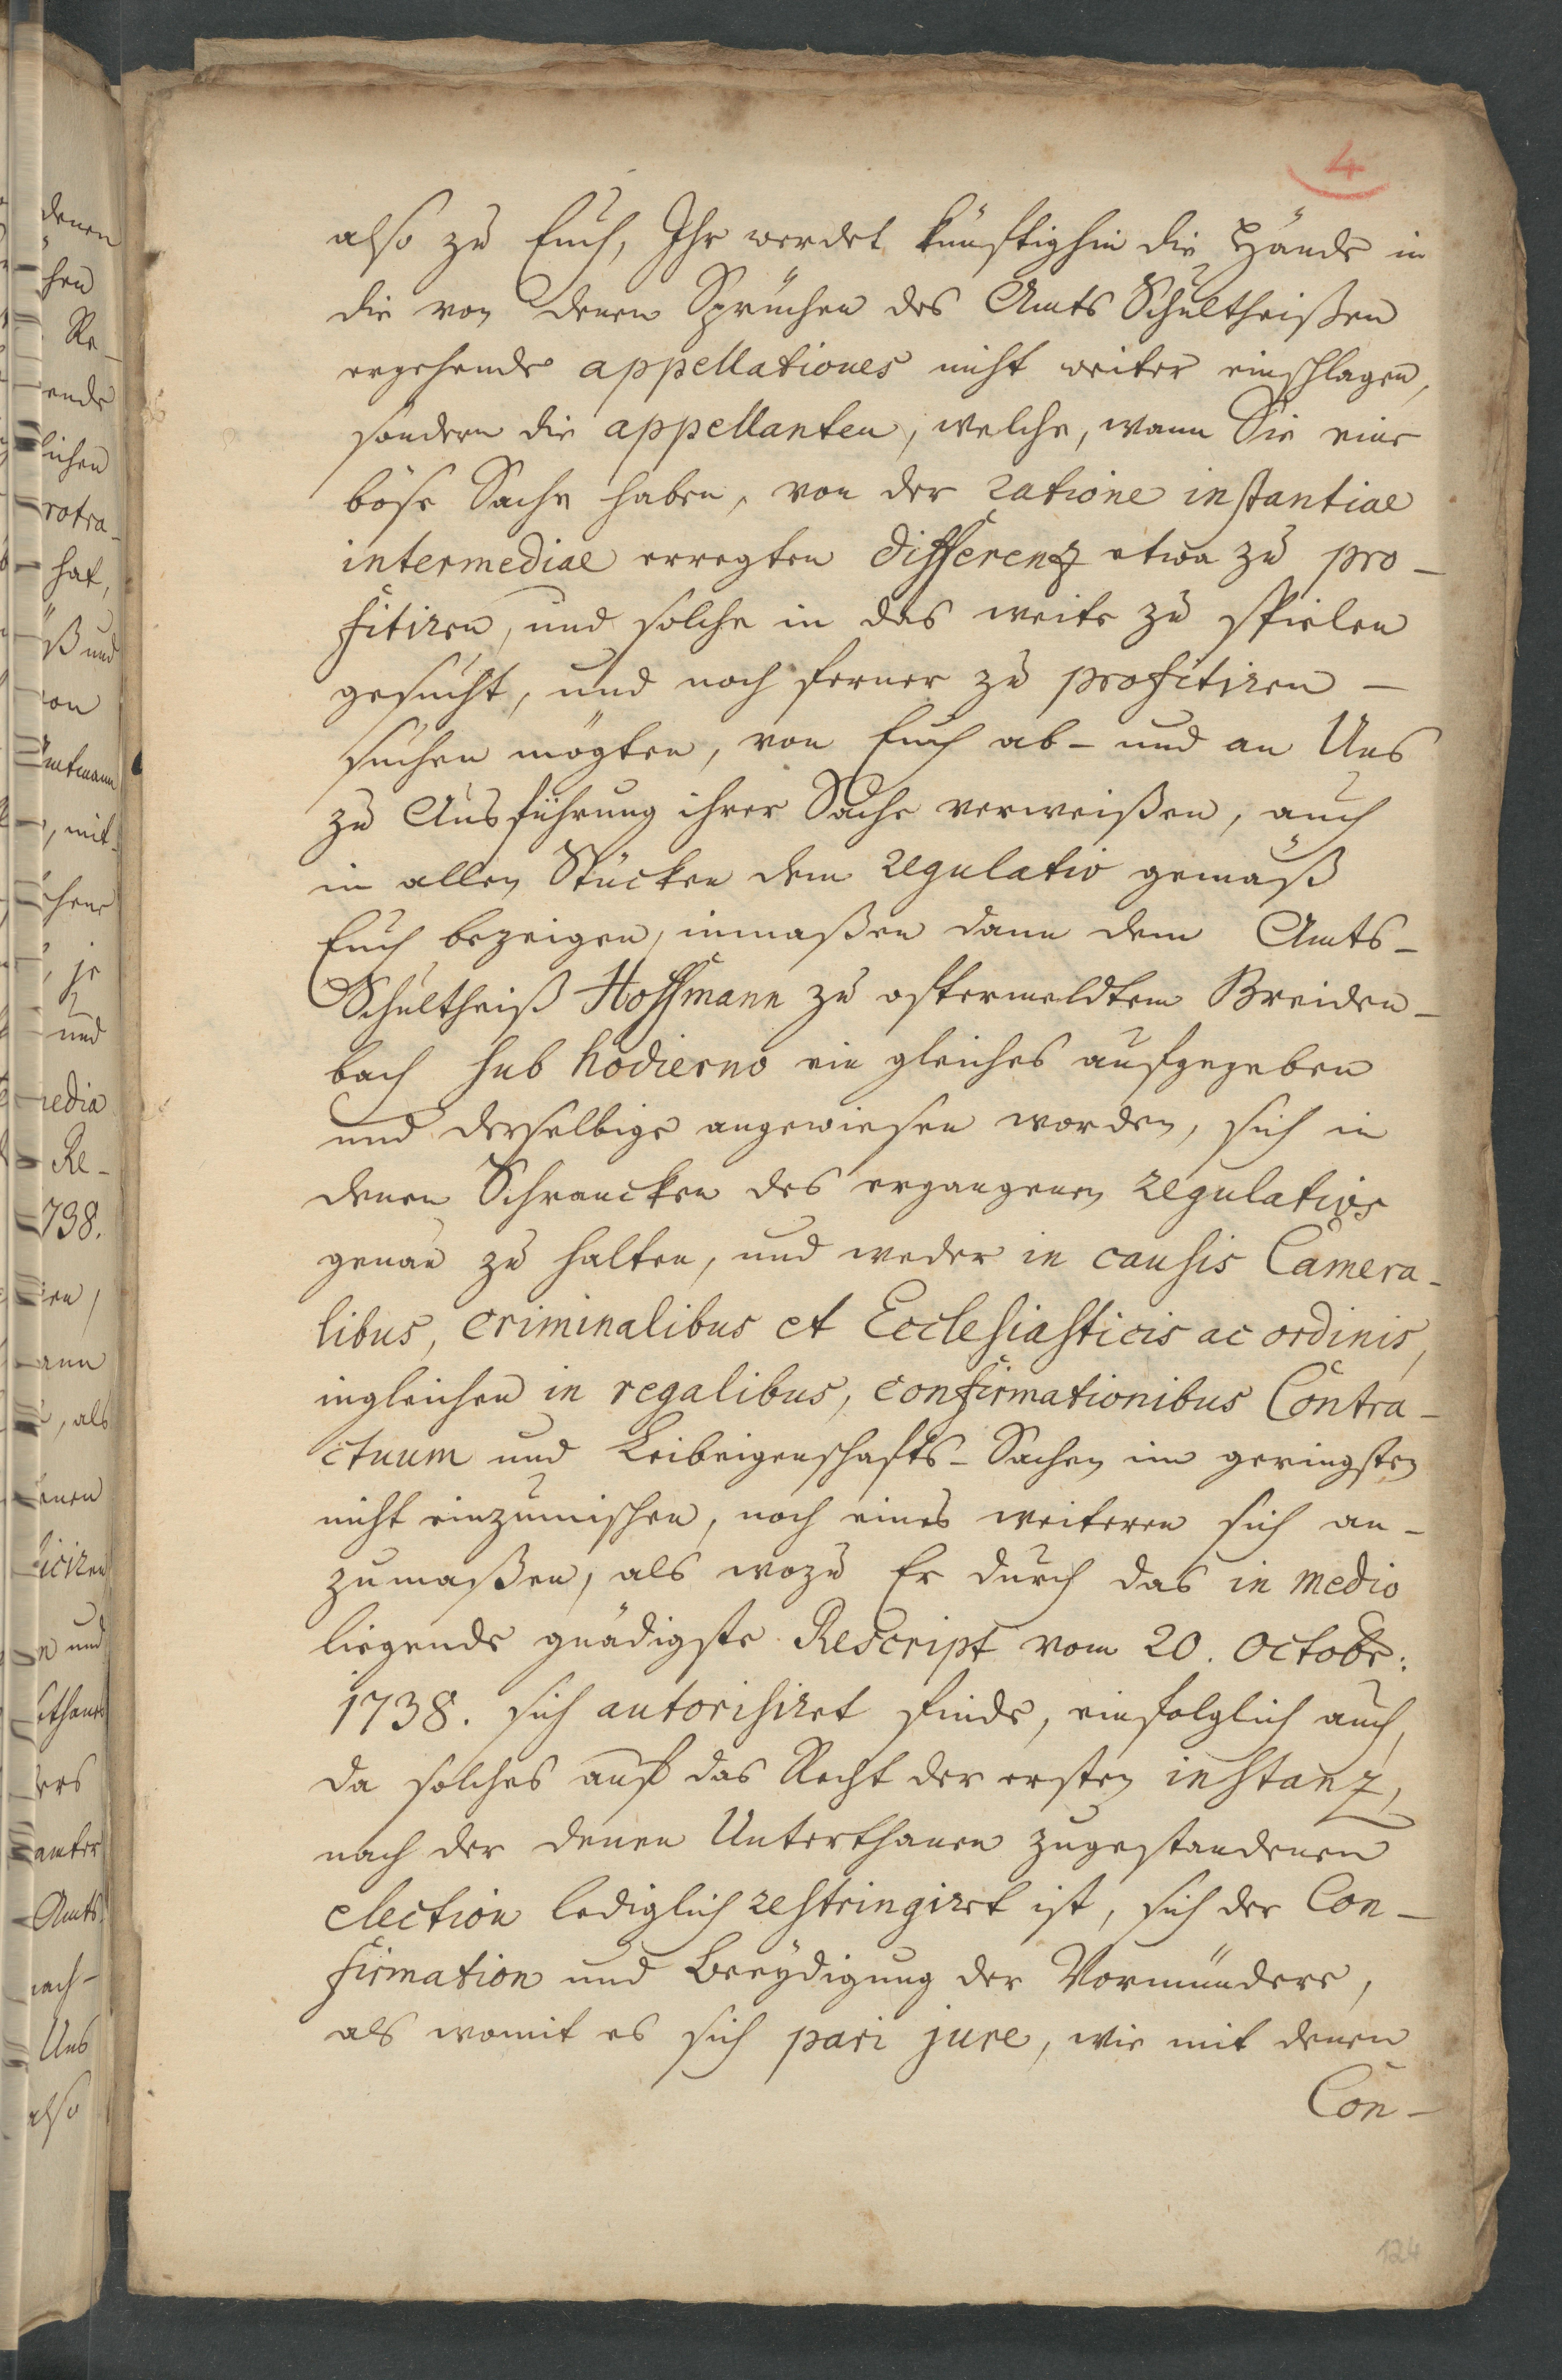 4
also zu Euch, Ihr werdet künftighin die Hände in
die von denen Sprüchen des Amts Schultheißen
ergehende appellationes nicht weiter einschlagen,
sondern die appellanten, welche, wann Sie eine
böse Sache haben, von der ratione instantiae
intermediae erregten Differenz etwa zu pro-
fitiren, und solche in das weite zu spielen
gesucht, und noch ferner zu profitiren -
suchen mögten, von Euch ab- und an Uns
zu Ausführung ihrer Sache verweißen, auch
in allen Stücken dem regulativ gemäß
Euch bezeigen, inmaßen dann dem Amts-
Schultheiß Hoffmann zu oftermeldtem Breiden-
bach sub hodierno ein gleiches aufgegeben
und derselbige angewiesen worden, sich in
denen Schrancken des ergangenen regulativs
genau zu halten, und weder in causis Camera-
libus, criminalibus et Ecclesiasticis ac ordinis,
ingleichen in regalibus, confirmationibus Contra-
ctuum und Leibeigenschafts-Sachen im geringsten
nicht einzumischen, noch eines weiteren sich an-
zumaßen, als wozu Er durch das in medio
liegende gnädigste Rescript vom 20. Octobr:
1738. sich autorisiret finde, einfolglich auch,
da solches auf das Recht der ersten instanz,
nach der denen Unterthanen zugestandenen
election lediglich restringiret ist, sich der Con-
firmation und Beeydigung der Vormündere,
als womit es sich pari jure, wie mit denen
Con-
124
denen
chen
Re-
ende
lichen
rotra-
hat,
ß und
von
Amtmann
, mit-
chene
, je
und
media
Re-
738.
en,
ann
, als
enen
iciren
n und
thane
ers
amter
Amts
nach-
Uns
also